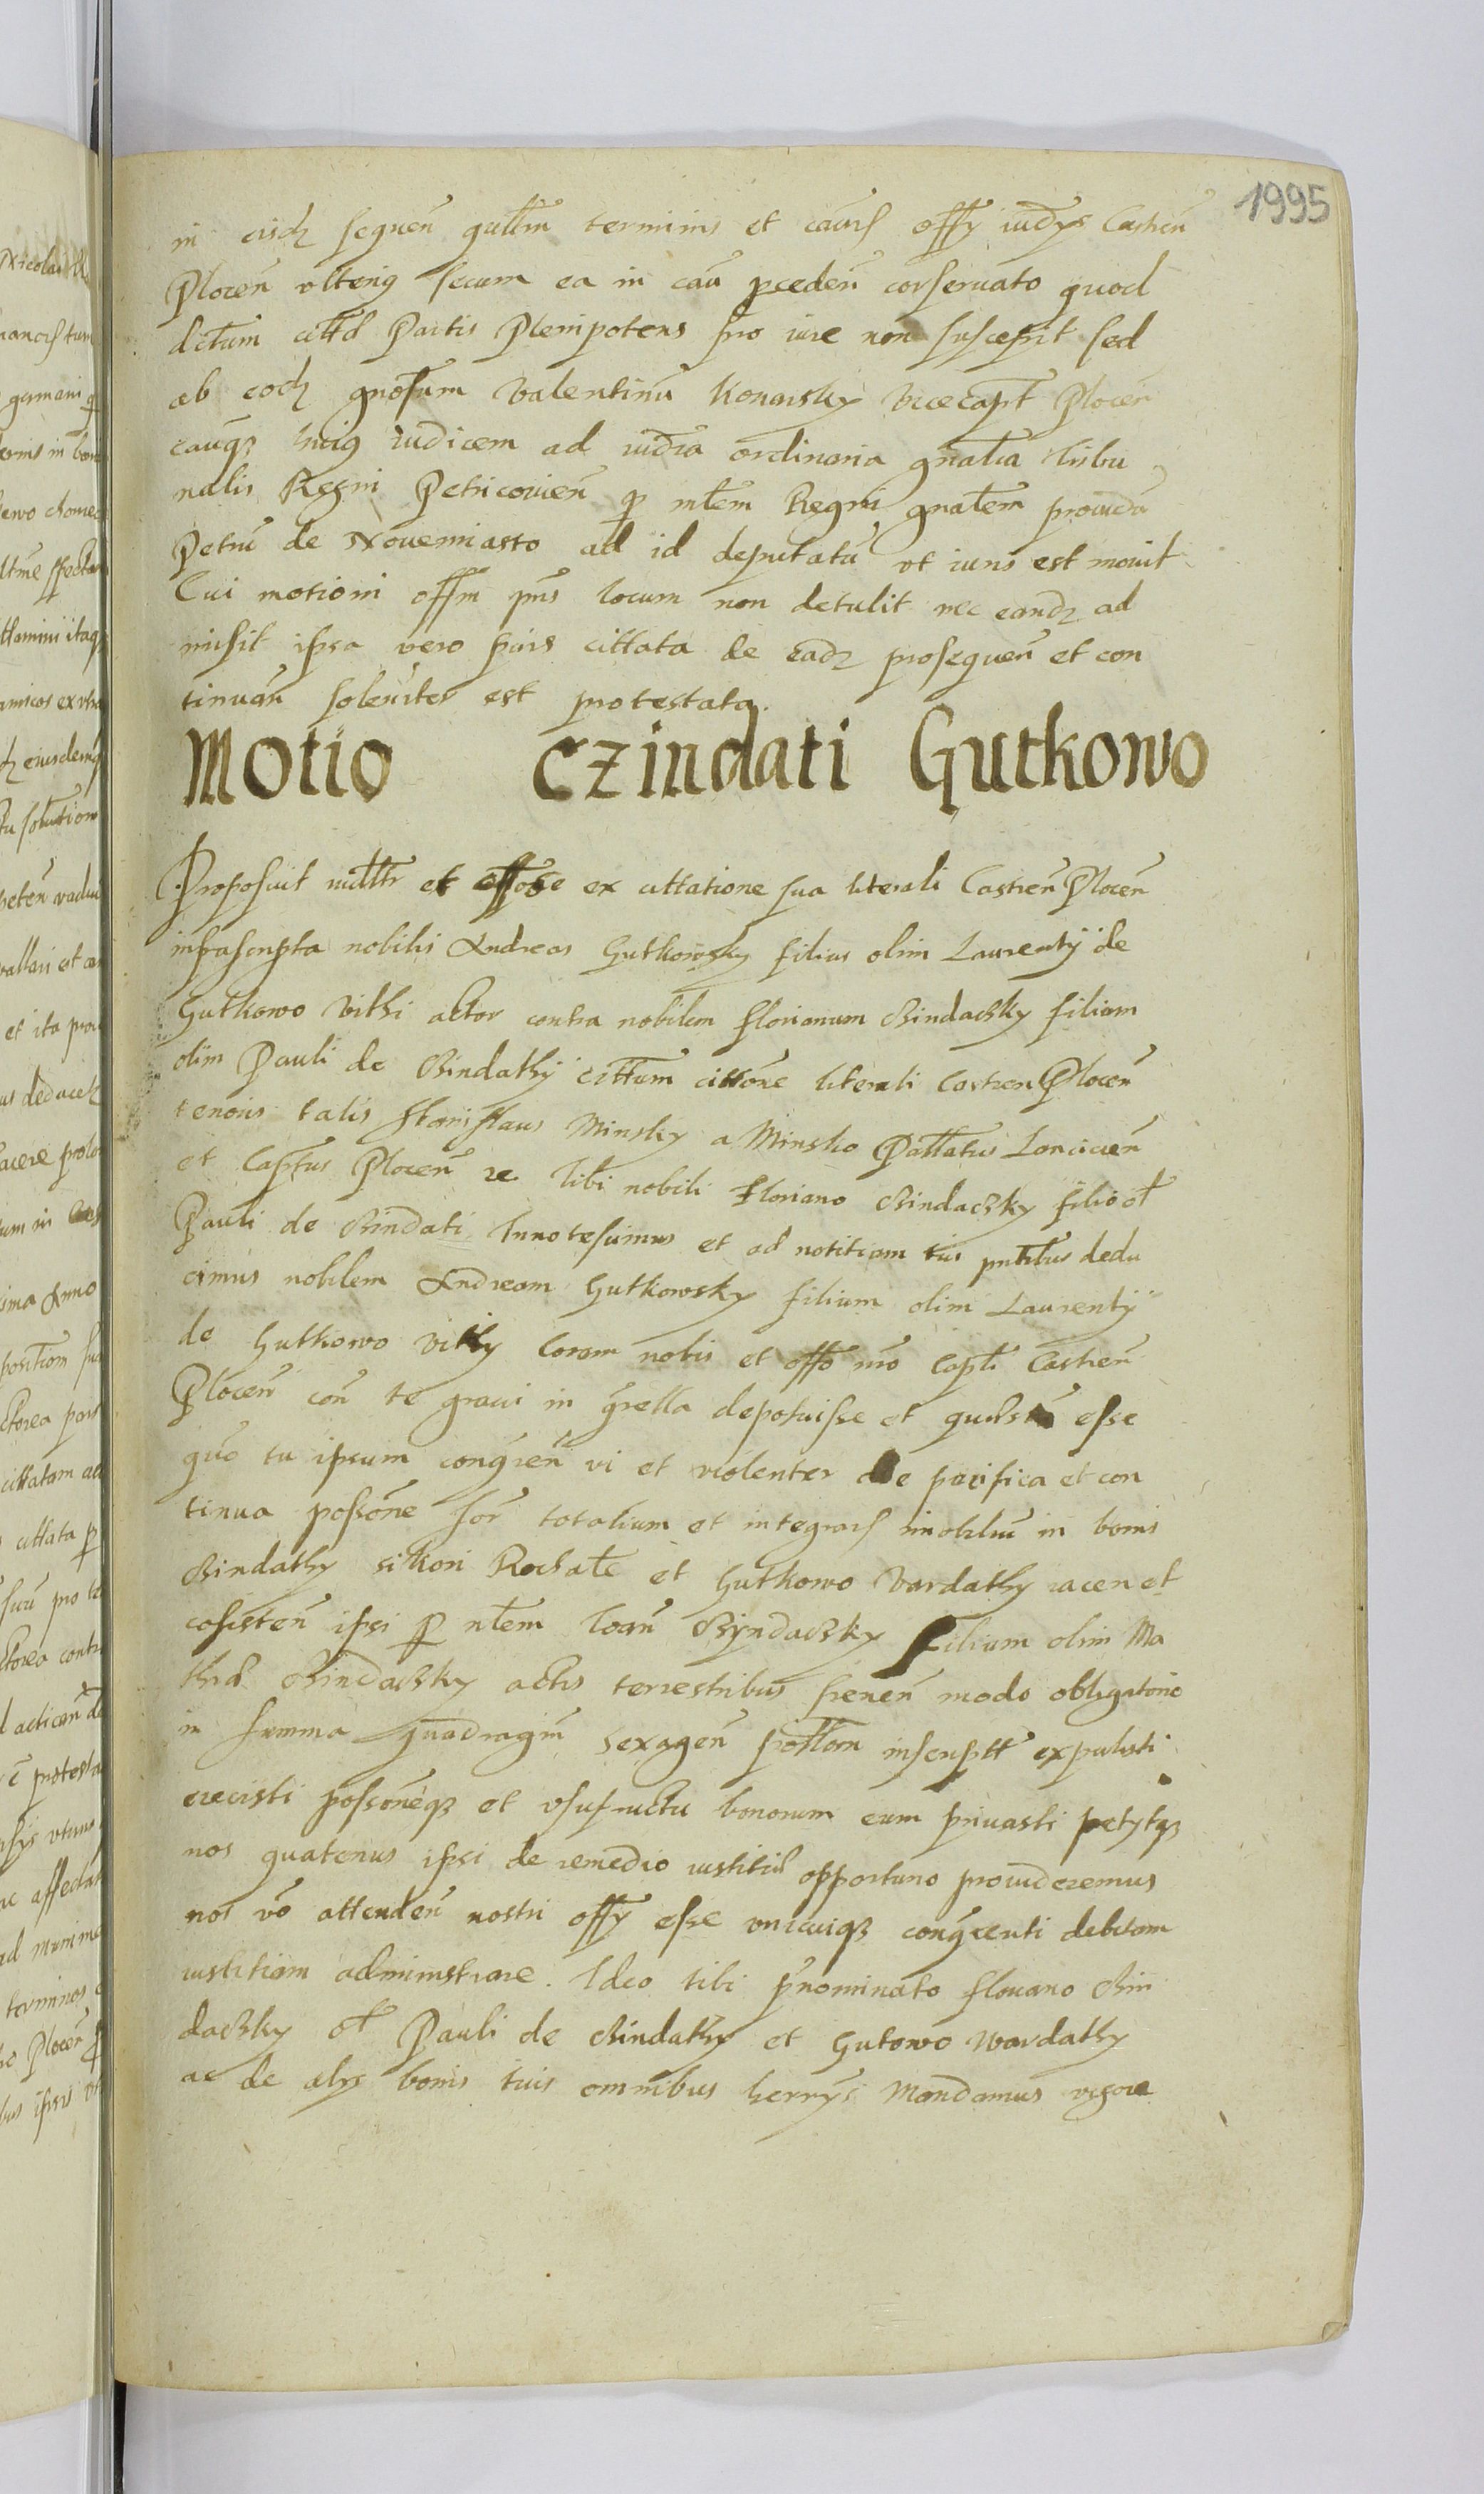 1995
in eisdz sequen̄ gnallm̄ terminis et causis offy iudy Castren̄
Plocen̄ vlterig secum ea in cau pcedeñ conseruato quod
dictum cittd Partis Plenipotens pro iure non suscepit sed
ab eodz gnosum Valentinū Konarsky vicecapt̄ Plocen̄
cauqz huig iudicem ad iudia ordinaria gnalia Tribu
nalis Regni Petricouien̄ p nltem Regni gnalem prouidū
Petrū de Nouemiasto ad id deputatū vt iuris est mouit
Cui motioni offm pns locum non detulit nec eandz ad
misit ipsa vero pars cittata de eadz prosequen̄ et con
tinuan̄ soleniter est protestata.
Motio Czindati Gutkowo
Proposuit iudltr et effose ex cittatione sua literali Castren̄ Plocen̄
infrascripta nobilis Andreas Gutkowsky filius olim Laurentÿ de
Gutkowo vithi actor contra nobilem Florianum Chindaczky filium
olim Pauli de Chindathÿ cittum cittōne literali Castren Plocen̄
tenoris talis Stanislaus Minsky a Minsko Pallatus Lancicien̄
et Captus Plocen̄ ꝛc Tibi nobili Floriano Chindaczky filio ol̄
Pauli de Chindati Innotescimus et ad notitiam tuā pntibus dedu
cimus nobilem Andream Gutkowsky filium olim Laurentÿ
de Gutkowo vithy Coram nobis et offo nr̄o Captli Castren̄
Plocen̄ con te graui in qrella deposuisse et questū esse
quō tu ipsum conqren̄ vi et violenter de pacifica et con
tinua possōne sor totalium et integrars imobliū in bonis
Chindathy sikori Rochale et Gutkowo Vardathy iacen et
cosisten̄ ipsi p nltem Ioan̄ Chÿndaczky Filium olim Ma
thiā Chindaczky actis terrestribus sienen̄ modo obligatorio
in summa quadragin̄ sexagen̄ pollem inscriptt expulisti
eiecisti possōneqz et vsufructu bonorum eum priuasti petytqz
nos quatenus ipsi de remedio iustitiā opportuno prouideremus
nos vō attenden̄ nostri offy esse vnicuiqz conqrenti debitam
iustitiam administrare. Ideo tibi p̄nominato Floriano Chin
daczky ol̄ Pauli de Chindathy et Gutowo Wardathy
ac de alys bonis tuis omnibus herrÿs Mandamus vigore